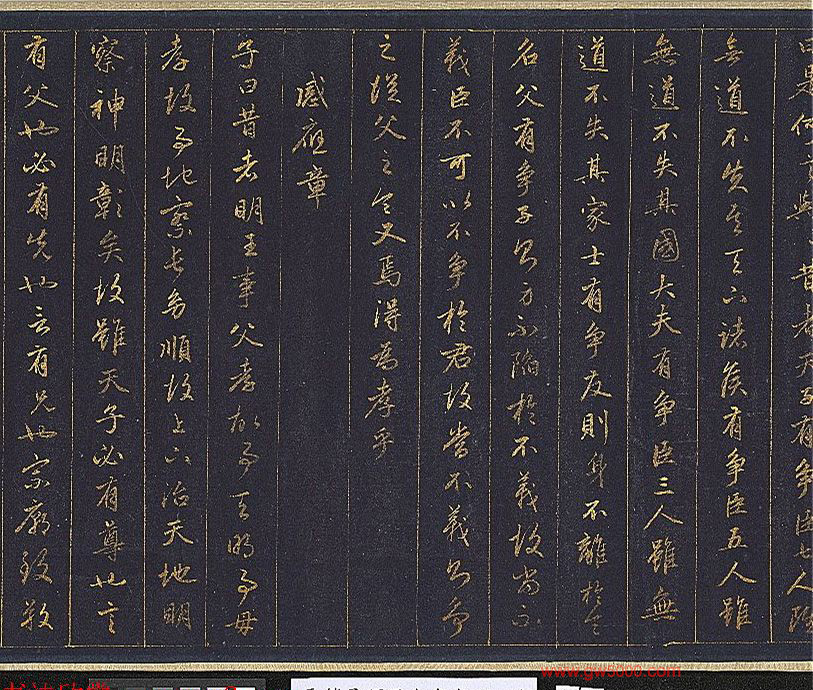 曰是何言與昔者天子有爭臣七人雖
無道不失其天下諸侯有爭臣五人雖
無道不失其國大夫有爭臣三人雖無
道不失其家士有爭友則身不離於令
名父有爭子則身不陷於不義故當不
義臣不可以不爭於君故當不義則爭
之從父之令又焉得為孝乎
感應章
子曰昔者明王事父孝故事天明事母
孝故事地察長幼順故上下治天地明
察神明彰矣故雖天子必有尊也言
有父也必有先也言有兄也宗廟致敬
www.gw5000.com
书法欣赏